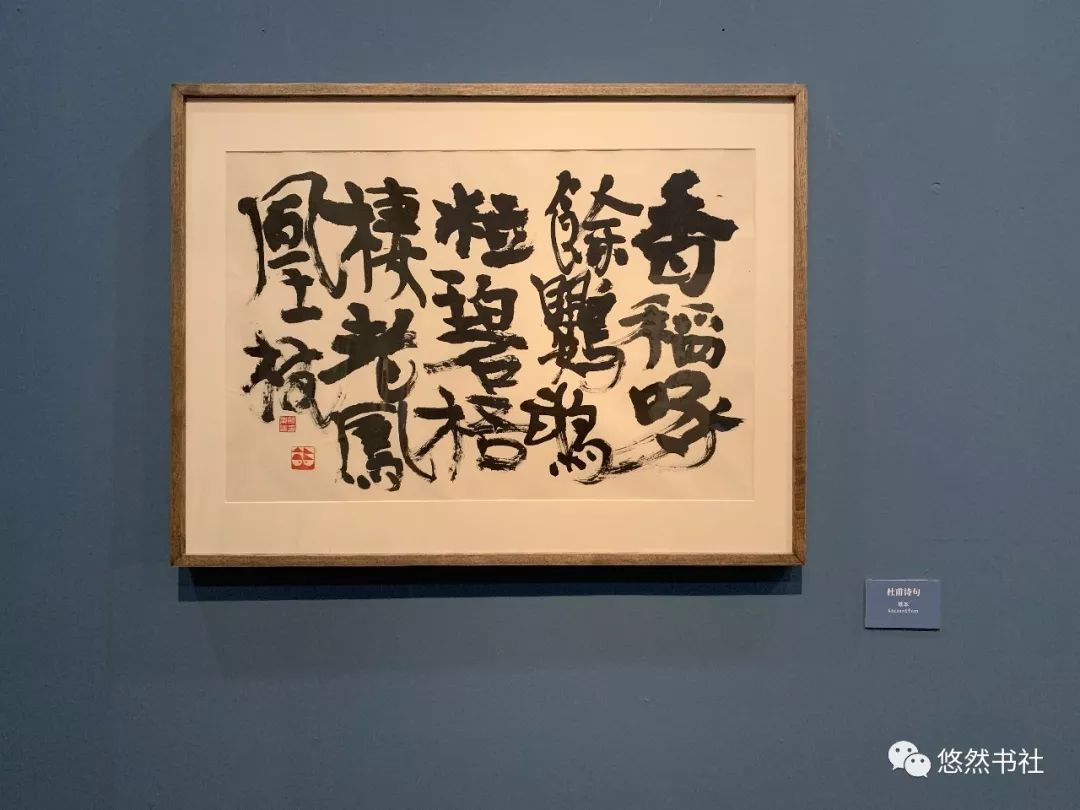 香稻啄
餘鸚鵡
粒碧梧
棲老鳳
凰枝
杜甫诗句
纸本
悠然书社